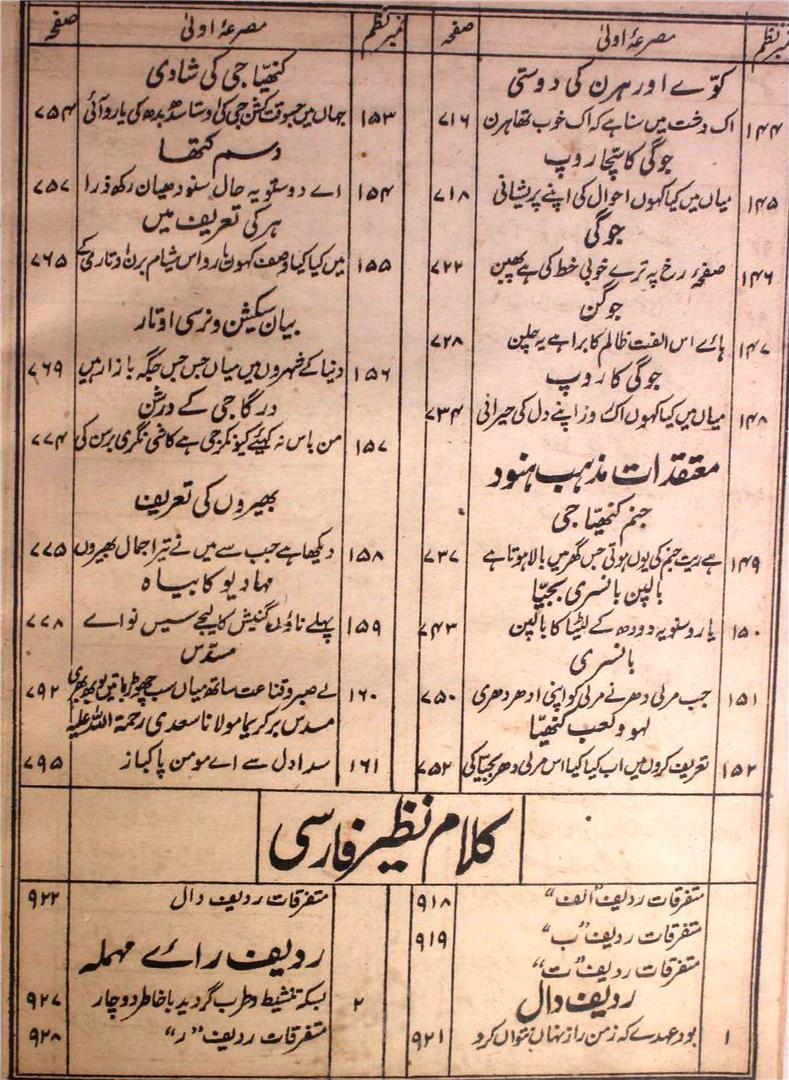 نمبر نظم	مصرعۂ اولیٰ	صفحہ
کوّے اور ہرن کی دوستی
۱۴۴	اک دشت میں سنا ہے کہ اک خوب تھا ہرن	۷۱۶
جوگی کا سچا روپ
۱۴۵	میاں میں کیا کہوں احوال کی اپنے پریشانی	۷۱۸
جوگی
۱۴۶	صفحۂ رخ پہ ترے خوبی خط کی ہے پھبن	۷۲۲
جوگن
۱۴۷	ہائے اس الفت ظالم کا برا ہے یہ چلن	۷۲۸
جوگی کا روپ
۱۴۸	میاں میں کیا کہوں اک روز اپنے دل کی حیرانی	۷۳۴
معتقدات مذہب ہنود
جنم کنھیّا جی
۱۴۹	ہے ریت جنم کی یوں ہوتی جس گھر میں بالا ہوتا ہے	۷۳۷
بالپن بانسری بجیّا
۱۵۰	یارو سنو یہ دودھ کے لٹیا کا بالپن	۷۴۳
بانسری
۱۵۱	جب مرلی دھر نے مرلی کو اپنی ادھر دھری	۷۵۰
لہو و لعب کنھیّا
۱۵۲	تعریف کروں میں اب کیا کیا اس مرلی دھر بجیّا کی	۷۵۲
نمبر نظم	مصرعۂ اولیٰ	صفحہ
کنھیّا جی کی شادی
۱۵۳	جہاں میں جسوقت کشن جی کی اوستا سدھ بدھ کی یارو آئی	۷۵۴
دسم کتھا
۱۵۴	اے دوستو یہ حال سنو دھیان رکھ ذرا	۷۵۷
ہر کی تعریف میں
۱۵۵	میں کیا کیا وصف کہوں یارو اس شیام برن اوتاری کے	۷۶۵
بیان سیکشن و نرسی اوتار
۱۵۶	دنیا کے شہروں میں میاں جس جس جگہ بازار ہیں	۷۶۹
درگا جی کے درشن
۱۵۷	من باس نہ کہیئے کیونکر جی ہے کاشی نگری برسن کی	۷۷۴
بھیروں کی تعریف
۱۵۸	دیکھا ہے جب سے میں نے تیرا جمال بھیروں	۷۷۵
مہادیو کا بیاہ
۱۵۹	پہلے ناؤں گنیش کا لیجے سیس نوائے	۷۷۸
مسدّس
۱۶۰	لے صبر و قناعت ساتھ میاں سب چھوڑ یہ باتیں لوبھ بھری	۷۹۲
مسدس بر کریما مولانا سعدی رحمۃ اللہ علیہ
۱۶۱	سدا دل سے اے مومن پاکباز	۷۹۵
کلام نظیر فارسی
متفرقات ردیف "الف"	۹۱۸
متفرقات ردیف "ب"	۹۱۹
متفرقات ردیف "ت"
ردیف دال
۱	بود عہدے کہ ز من راز نہاں نتواں کرد	۹۲۱
متفرقات ردیف دال	۹۲۲
ردیف رائے مہملہ
۲	بسکہ تنشیط و طرب گردید با خاطر دوچار	۹۲۷
متفرقات ردیف "ر"	۹۲۸